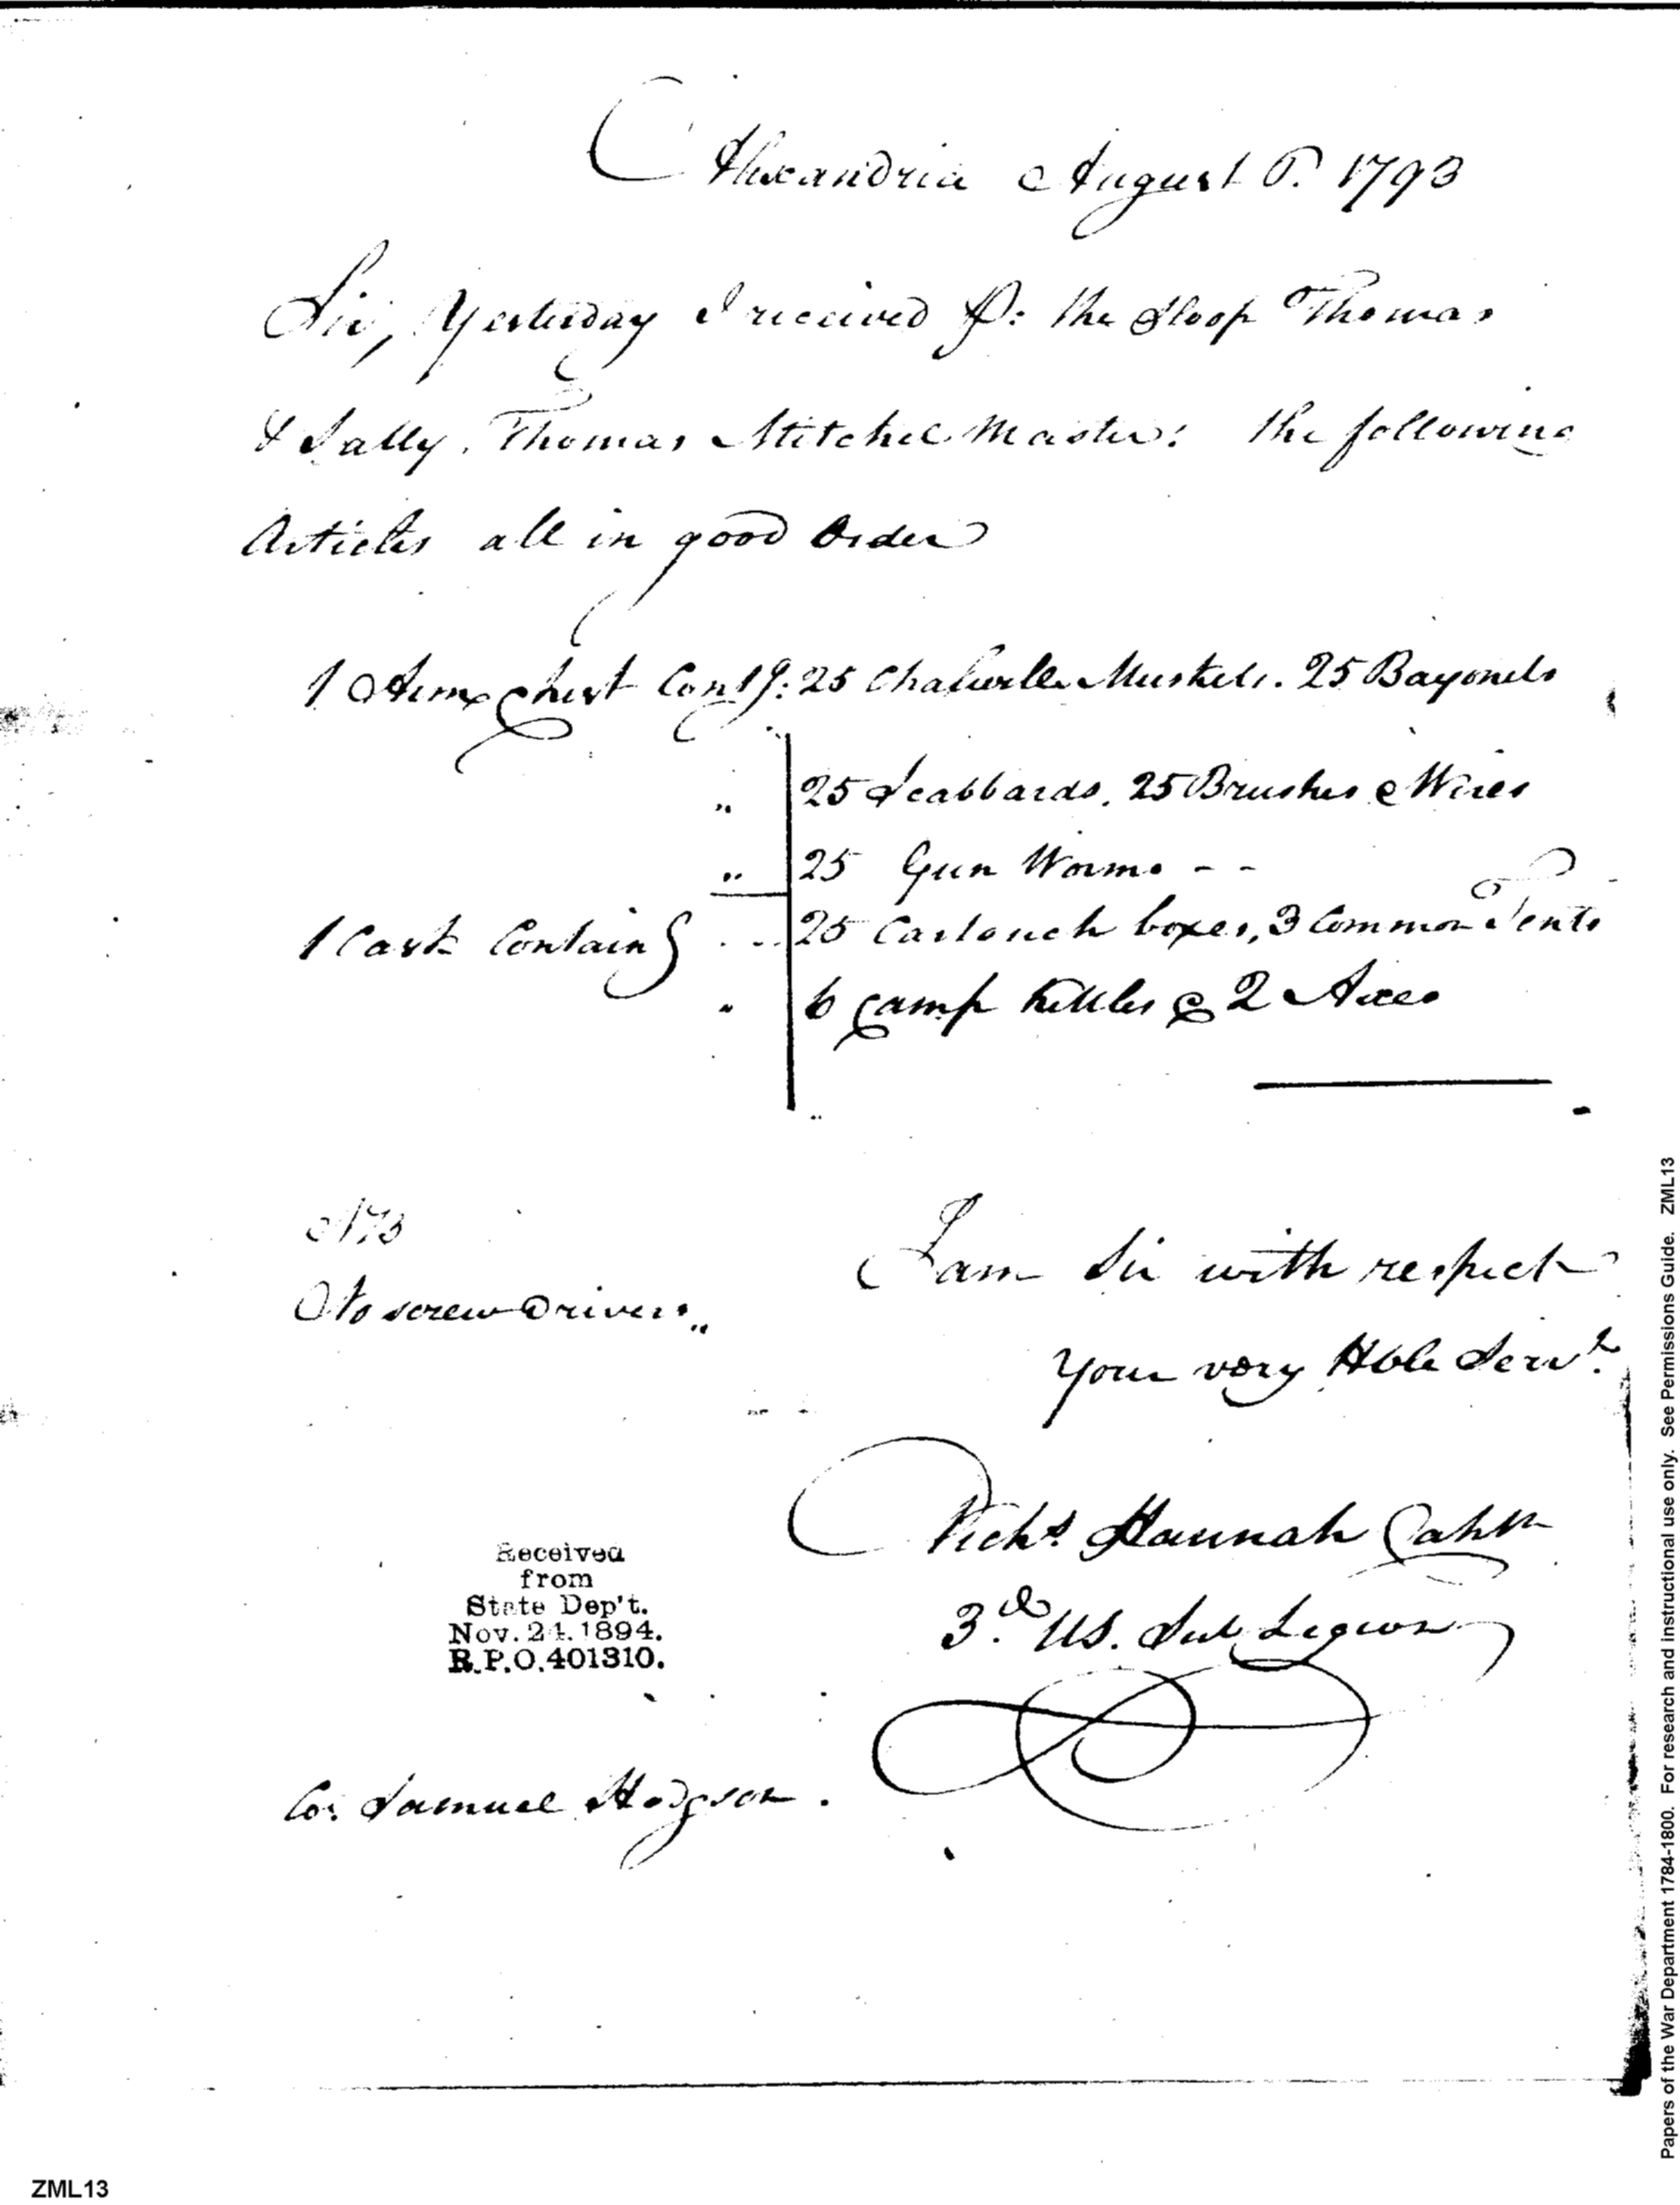 Alexandria August 6. 1793
Sir, Yesterday I received P: the Sloop Thomas
& Sally. Thomas Mitchel Master: the following
Articles all in good Order
1 Arm Chest Contg: 25 Chalivelle Muskets. 25 Bayonets
" 25 Scabbards, 25 Brushes & Wires
" 25 Gun Worms - -
1 Cask Containg ... 25 Cartouch boxes, 3 Common Tents
" 6 Camp Kettles & 2 Axes
NB
No screw Drivers "
I am Sir with respect
Your very Hble Servt.
Richd. Hannah Captn
3.d US. Sub Legion
Received
from
State Dep't.
Nov. 24. 1894.
R.P.O. 401310.
Co: Samuel Hodgson.
Papers of the War Department 1784-1800. For research and instructional use only. See Permissions Guide. ZML13
ZML13